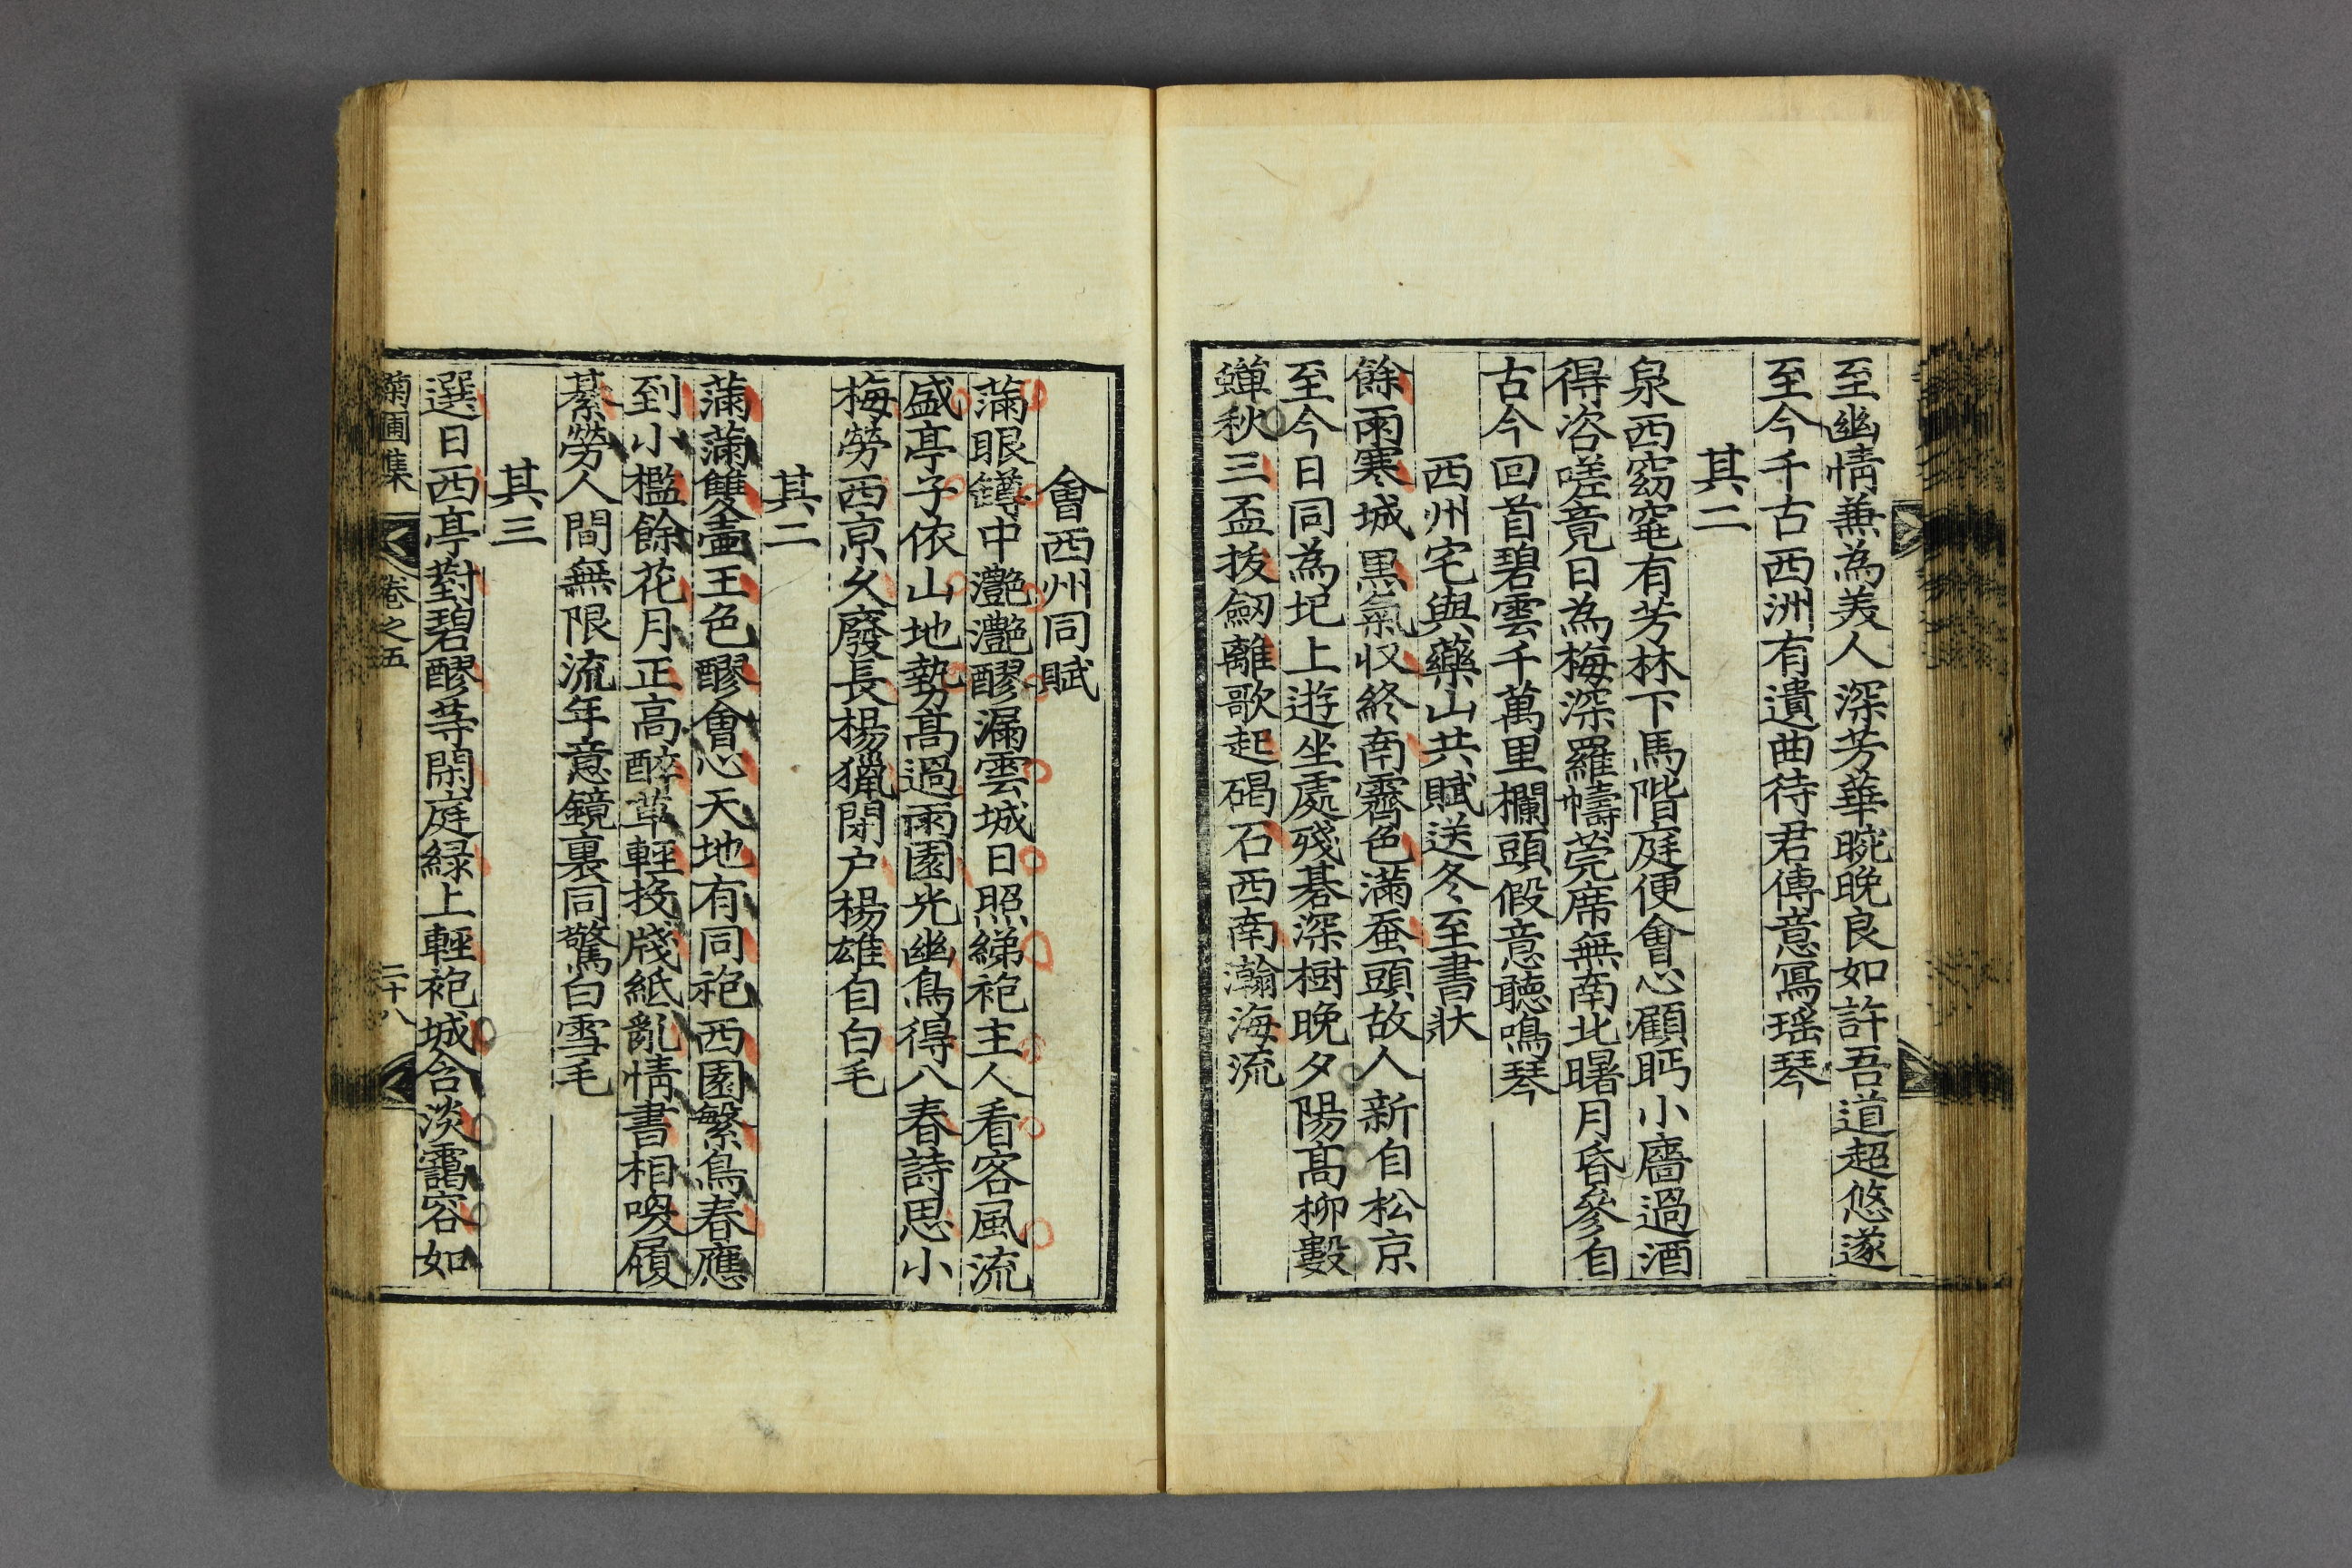 至幽情兼為美人深芳華晼晚良如許吾道超悠遂
至今千古西洲有遺曲待君傳意寫瑤琴
其二
泉西窈窕有芳林下馬階庭便會心顧眄小廧過酒
得咨嗟竟日為梅深羅幬莞席無南北曙月昏參自
古今回首碧雲千萬里欄頭假意聽鳴琴
西州宅與藥山共賦送冬至書狀
餘雨寒城黑氣收終南霽色滿蚕頭故人新自松京
至今日同為圯上遊坐處殘碁深樹晚夕陽高柳數
蟬秋三盃拔劒離歌起碣石西南瀚海流
會西州同賦
滿眼罇中灧灧醪漏雲城日照綈袍主人看客風流
盛亭子依山地勢高過雨園光幽鳥得八春詩思小
梅勞西京久廢長楊獵閉户楊雄自白毛
其二
滿滿雙壺玉色醪會心天地有同袍西園繁鳥春應
到小檻餘花月正高醉草輕投牋紙亂情書相喚履
綦勞人間無限流年意鏡裏同驚白雪毛
其三
選日西亭對碧醪等閑庭緑上輕袍城含淡靄容如
菊圃集 卷之五 二十八